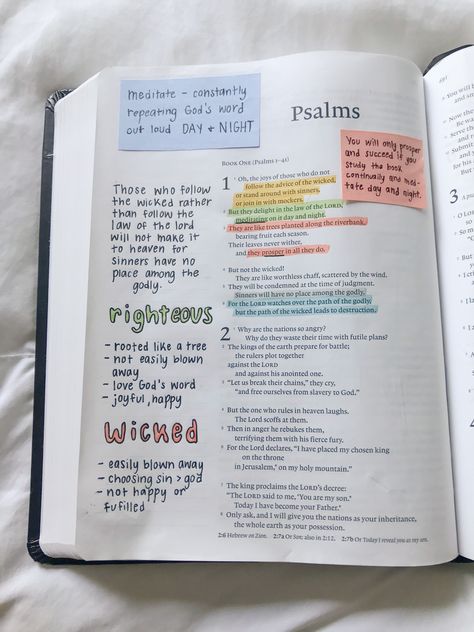 meditate - constantly
repeating God's word
out loud DAY & NIGHT
Psalms
You will only prosper
and succeed if you
study the book
continually and medi-
tate day and night.
Those who follow
the wicked rather
than follow the
law of the lord
will not make it
to heaven for
sinners have no
place among the
godly.
righteous
- rooted like a tree
- not easily blown
away
- love God's word
- joyful, happy
wicked
- easily blown away
- choosing sin > god
- not happy or
fufilled
BOOK ONE (Psalms 1–41)
1 1 Oh, the joys of those who do not
follow the advice of the wicked,
or stand around with sinners,
or join in with mockers.
2 But they delight in the law of the LORD,
meditating on it day and night.
3 They are like trees planted along the riverbank,
bearing fruit each season.
Their leaves never wither,
and they prosper in all they do.
4 But not the wicked!
They are like worthless chaff, scattered by the wind.
5 They will be condemned at the time of judgment.
Sinners will have no place among the godly.
6 For the LORD watches over the path of the godly,
but the path of the wicked leads to destruction.
2 1 Why are the nations so angry?
Why do they waste their time with futile plans?
2 The kings of the earth prepare for battle;
the rulers plot together
against the LORD
and against his anointed one.
3 "Let us break their chains," they cry,
"and free ourselves from slavery to God."
4 But the one who rules in heaven laughs.
The Lord scoffs at them.
5 Then in anger he rebukes them,
terrifying them with his fierce fury.
6 For the Lord declares, "I have placed my chosen king
on the throne
in Jerusalem, on my holy mountain."
7 The king proclaims the LORD's decree:
"The LORD said to me, 'You are my son.
Today I have become your Father.
8 Only ask, and I will give you the nations as your inheritance,
the whole earth as your possession.
2:6 Hebrew on Zion. 2:7a Or Son; also in 2:12. 2:7b Or Today I reveal you as my son.
3